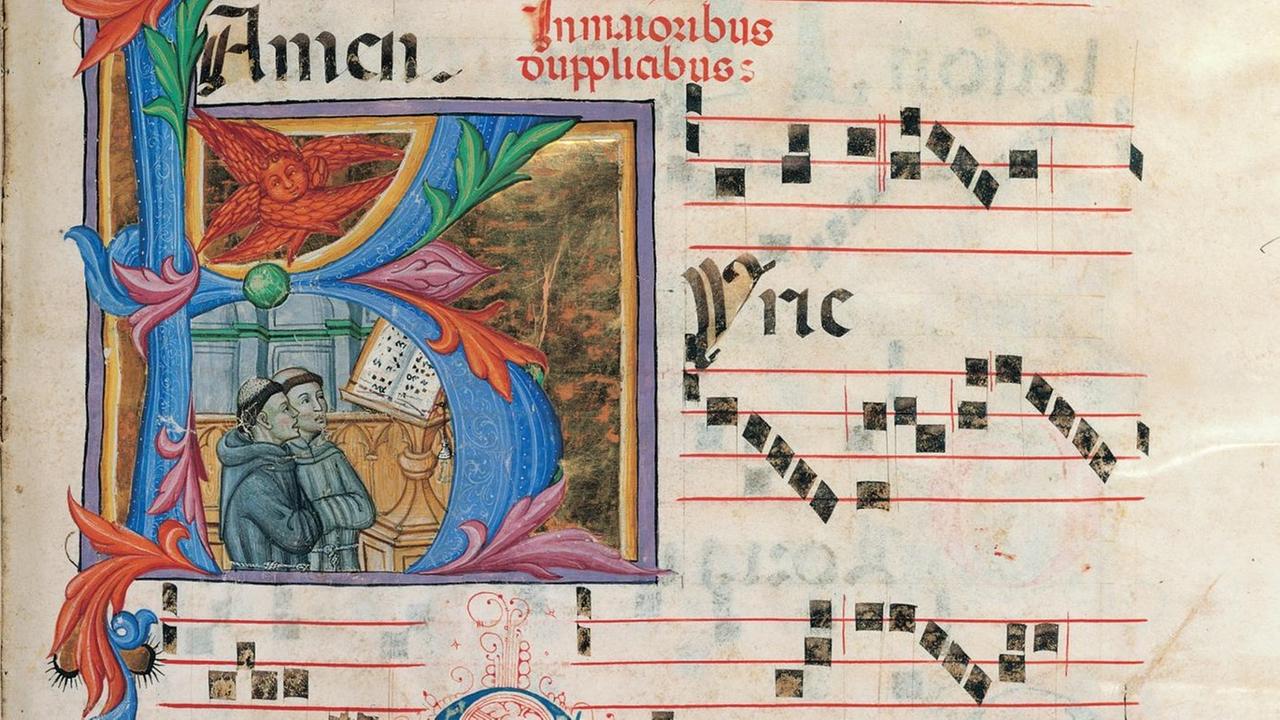 Amen.
In maioribus
dupplicibus:
Kyrie